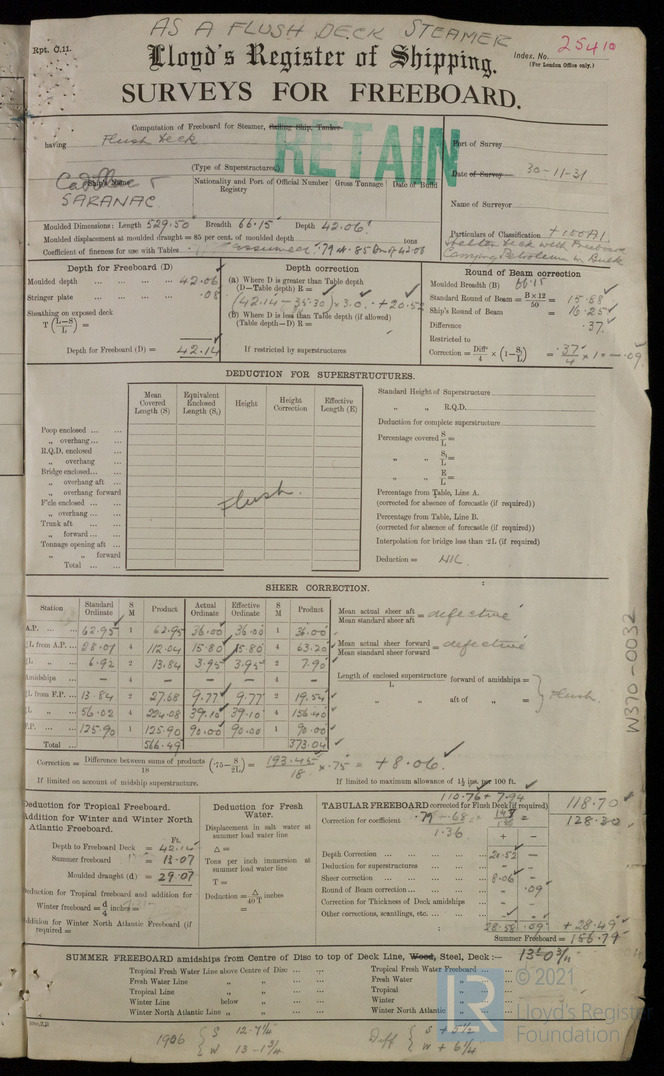 AS A FLUSH DECK STEAMER
Rpt. C.11.
Lloyd's Register of Shipping.
Index. No. 25410
(For London Office only.)
SURVEYS FOR FREEBOARD.
RETAIN
Computation of Freeboard for Steamer, Sailing Ship, Tanker
having Flush deck
(Type of Superstructures)
Port of Survey
Date of Survey 30-11-31
Name of Surveyor
Particulars of Classification +100A1
Shelter deck with Freeboard
Carrying Petroleum in Bulk
Ship's Name
SARANAC
Nationality and Port of Registry
Official Number
Gross Tonnage
Date of Build
Moulded Dimensions: Length 529.50 Breadth 66.15 Depth 42.06
Moulded displacement at moulded draught = 85 per cent. of moulded depth tons
Coefficient of fineness for use with Tables assumed .79 at .85 Dm of 42.06
Depth for Freeboard (D)
Moulded depth ... 42.06
Stringer plate ... .08
Sheathing on exposed deck
T (L-S/L) =
Depth for Freeboard (D) = 42.14
Depth correction
(a) Where D is greater than Table depth
(D-Table depth) R =
(42.14 - 35.30) × 3.0 = +20.52
(b) Where D is less than Table depth (if allowed)
(Table depth-D) R =
If restricted by superstructures
Round of Beam correction
Moulded Breadth (B) 66.15
Standard Round of Beam = B × 12/50 = 15.88
Ship's Round of Beam = 16.25
Difference .37
Restricted to
Correction = Diff/4 × (1 - S₁/L) = .37/4 × 1 = -.09
DEDUCTION FOR SUPERSTRUCTURES.
Mean Covered Length (S)
Equivalent Enclosed Length (S₁)
Height
Height Correction
Effective Length (E)
Poop enclosed ...
„ overhang ...
R.Q.D. enclosed
„ overhang
Bridge enclosed...
„ overhang aft ...
„ overhang forward
F'cle enclosed ...
„ overhang ...
Trunk aft ...
„ forward ...
Tonnage opening aft ...
„ „ forward
Total ...
Flush.
Standard Height of Superstructure
„ „ R.Q.D.
Deduction for complete superstructure
Percentage covered S/L =
„ „ S₁/L =
„ „ E/L =
Percentage from Table, Line A.
(corrected for absence of forecastle (if required))
Percentage from Table, Line B.
(corrected for absence of forecastle (if required))
Interpolation for bridge less than ·2L (if required)
Deduction = NIL
SHEER CORRECTION.
Station | Standard Ordinate | S M | Product | Actual Ordinate | Effective Ordinate | S M | Product
A.P. ... 62.95 1 62.95 36.00 36.00 1 36.00
L from A.P. ... 28.01 4 112.04 15.80 15.80 4 63.20
L „ ... 6.92 2 13.84 3.95 3.95 2 7.90
Amidships ... - 4 - - - 4 -
L from F.P. ... 13.84 2 27.68 9.77 9.77 2 19.54
L „ ... 56.02 4 224.08 39.10 39.10 4 156.40
F.P. ... 125.90 1 125.90 90.00 90.00 1 90.00
Total ... 566.49 373.04
Mean actual sheer aft / Mean standard sheer aft = defective
Mean actual sheer forward / Mean standard sheer forward = defective
Length of enclosed superstructure / L forward of amidships =
„ „ aft of „ =
Flush.
Correction = Difference between sums of products / 18 (·75 - S/2L) = 193.45/18 × .75 = +8.06.
If limited on account of midship superstructure.
If limited to maximum allowance of 1½ ins. per 100 ft.
Deduction for Tropical Freeboard.
Addition for Winter and Winter North Atlantic Freeboard.
Ft.
Depth to Freeboard Deck = 42.14
Summer freeboard = 13.07
Moulded draught (d) = 29.07
Deduction for Tropical freeboard and addition for
Winter freeboard = d/4 inches =
Addition for Winter North Atlantic Freeboard (if required =
Deduction for Fresh Water.
Displacement in salt water at summer load water line
Δ =
Tons per inch immersion at summer load water line
T =
Deduction = Δ/40 T inches
=
110.76 + 7.94
TABULAR FREEBOARD corrected for Flush Deck (if required) 118.70
Correction for coefficient .79 + .68 / 1.36 = 128.30
+ -
Depth Correction ... 20.52 -
Deduction for superstructures ... - -
Sheer correction ... 8.06 -
Round of Beam correction ... - .09
Correction for Thickness of Deck amidships ... - -
Other corrections, scantlings, etc. ... - -
28.58 .09 +28.49
Summer Freeboard = 156.79
SUMMER FREEBOARD amidships from Centre of Disc to top of Deck Line, Wood, Steel, Deck:- 13' 0¾"
Tropical Fresh Water Line above Centre of Disc ...
Fresh Water Line „ „ ...
Tropical Line „ „ ...
Winter Line below „ ...
Winter North Atlantic Line „ „ ...
Tropical Fresh Water Freeboard ...
Fresh Water „
Tropical „
Winter „
Winter North Atlantic „
1906 { S 12-7¼
W 13-1¾
Diff { S + 5½
W + 6¼
W370-0032
© 2021
Lloyd's Register
Foundation